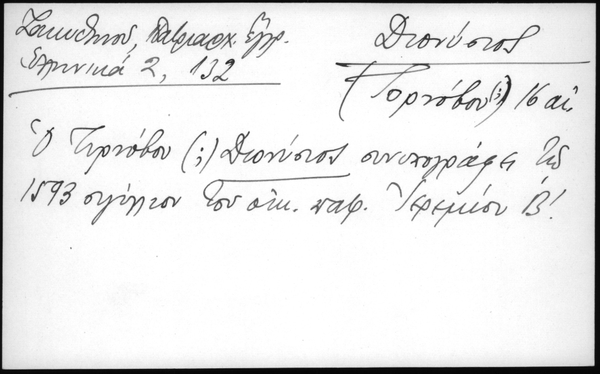 Ζακυθηνοῦ, Πατριαρχ. Ἔγγρ.
Ἑλληνικά 2, 132
Διονύσιος
(Τορνόβου(;)) 16 αἰ.
Ὁ Τιρνόβου (;) Διονύσιος συνυπογράφει τῷ
1593 σιγίλλιον τοῦ οἰκ. πατρ. Ἱερεμίου Β'.